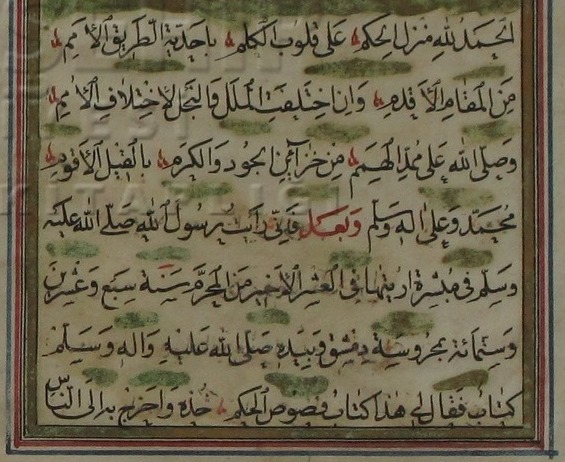 الحمد لله منزل الحكم على قلوب الكلم باحدية الطريق الامم
من المقام الاقدم وان اختلفت الملل والنحل لاختلاف الامم
وصلى الله على ممد الهمم من خزآئن الجود والكرم بالقيل الاقوم
محمد وعلى اله وسلم وبعد فانى رايت رسول الله صلى الله عليه
وسلم فى مبشرة اريتها فى العشر الاخير من المحرم سنة سبع وعشرين
وستمائة بمحروسة دمشق وبيده صلى الله عليه واله وسلم
كتاب فقال لى هذا كتاب فصوص الحكم خذه واخرج به الى الناس